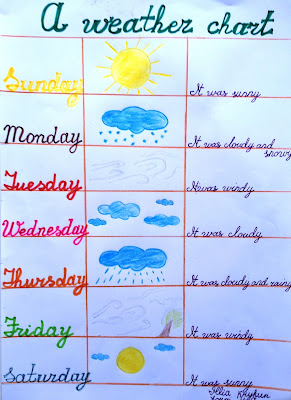 A weather chart
Sunday
It was sunny
Monday
It was cloudy and
snowy
Tuesday
It was windy
Wednesday
It was cloudy
Thursday
It was cloudy and rainy
Friday
It was windy
Saturday
It was sunny